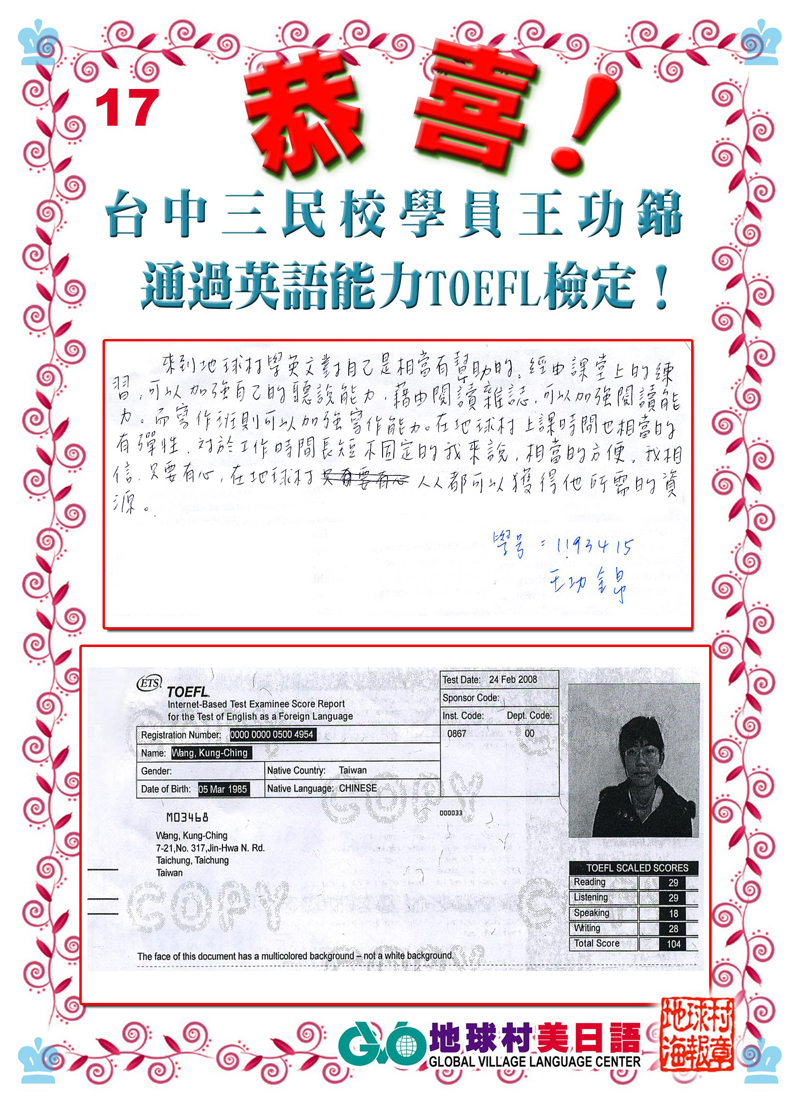 17
恭喜！
台中三民校學員王功錦
通過英語能力TOEFL檢定！
來到地球村學英文對自己是相當有幫助的。經由課堂上的練
習，可以加強自己的聽說能力，藉由閱讀雜誌，可以加強閱讀能
力。而寫作班則可以加強寫作能力。在地球村上課時間也相當的
有彈性，對於工作時間長短不固定的我來說，相當的方便。我相
信，只要有心，在地球村 人人都可以獲得他所需的資
源。
學號：1193415
王功錦
ETS TOEFL
Internet-Based Test Examinee Score Report
for the Test of English as a Foreign Language
Test Date: 24 Feb 2008
Sponsor Code:
Inst. Code: Dept. Code:
0867 00
Registration Number: 0000 0000 0500 4954
Name: Wang, Kung-Ching
Gender: Native Country: Taiwan
Date of Birth: 05 Mar 1985 Native Language: CHINESE
000033
M03468
Wang, Kung-Ching
7-21,No. 317,Jin-Hwa N. Rd.
Taichung, Taichung
Taiwan
COPY
COPY
TOEFL SCALED SCORES
Reading 29
Listening 29
Speaking 18
Writing 28
Total Score 104
The face of this document has a multicolored background – not a white background.
GVO 地球村美日語
GLOBAL VILLAGE LANGUAGE CENTER
地球村
海報章